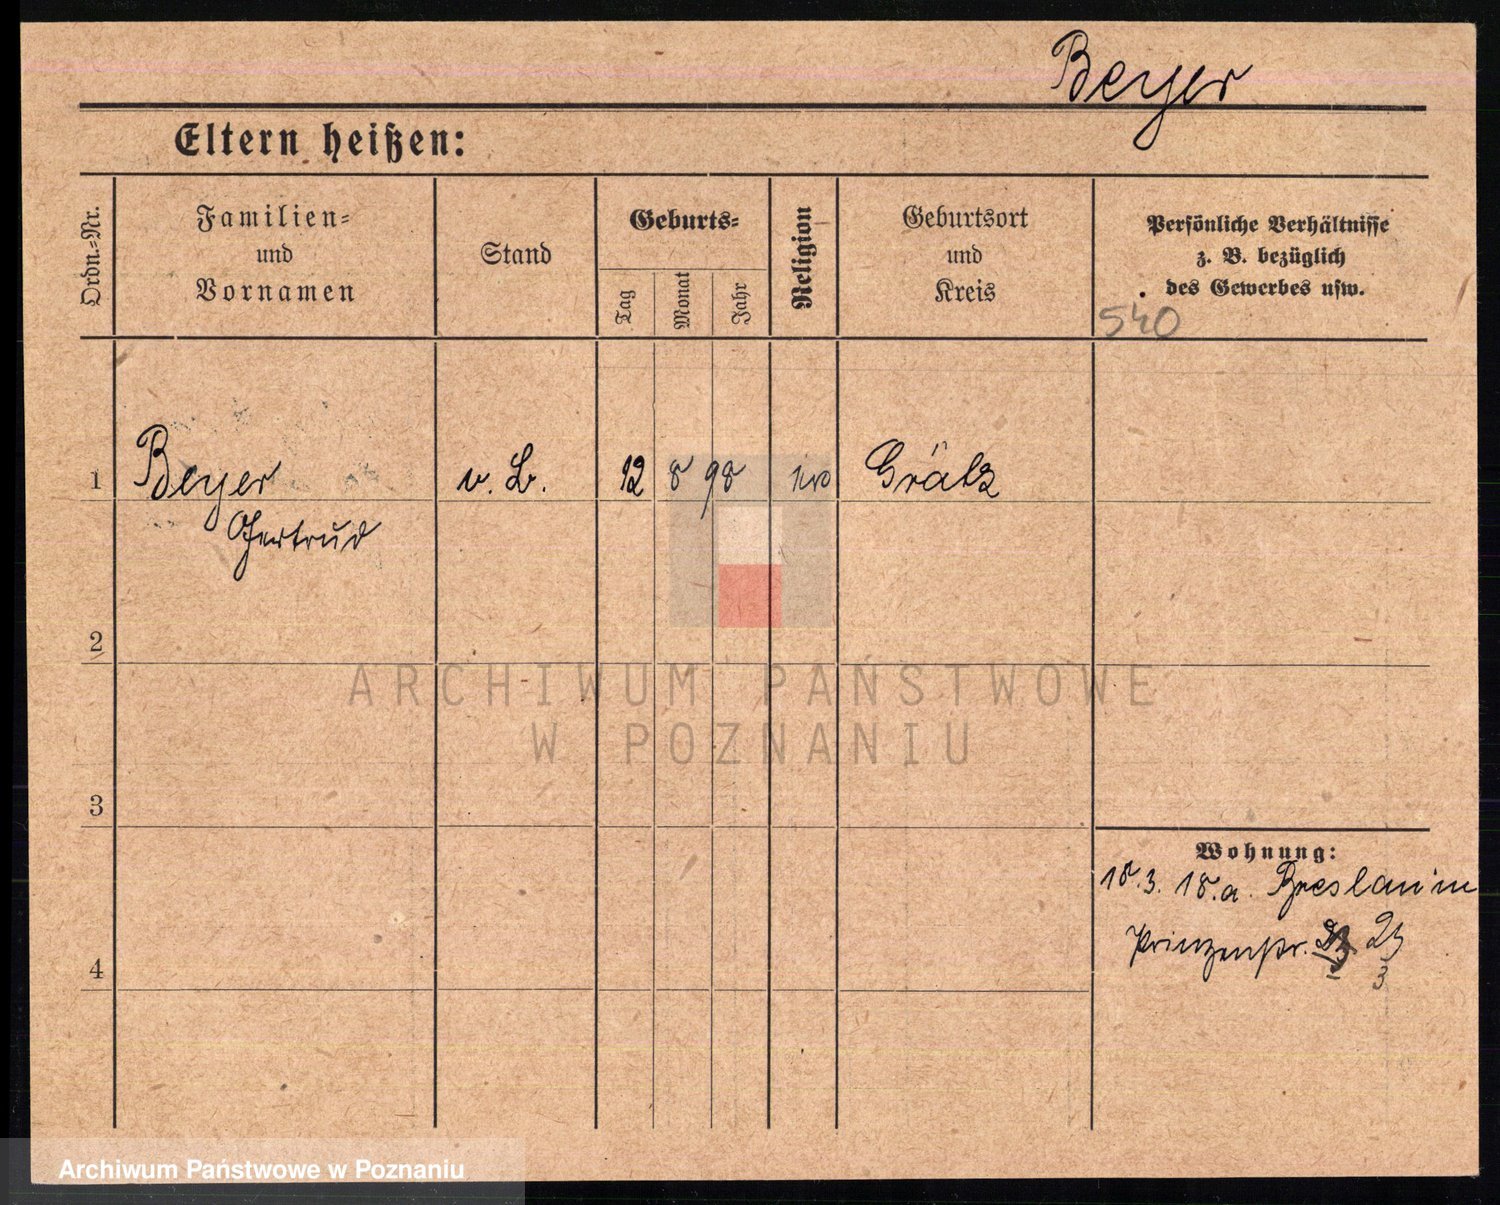 Beyer
Eltern heißen:
Ordn.=Nr.
Familien=
und
Vornamen
Stand
Geburts=
Tag
Monat
Jahr
Religion
Geburtsort
und
Kreis
Persönliche Verhältnisse
z. B. bezüglich
des Gewerbes usw.
540
1 Beyer o. B. 12 8 98 Grätz
Gertrud
2
3
4
Wohnung:
18.3.18. a. Breslau in
Prinzenstr. 23
3
ARCHIWUM PAŃSTWOWE
W POZNANIU
Archiwum Państwowe w Poznaniu